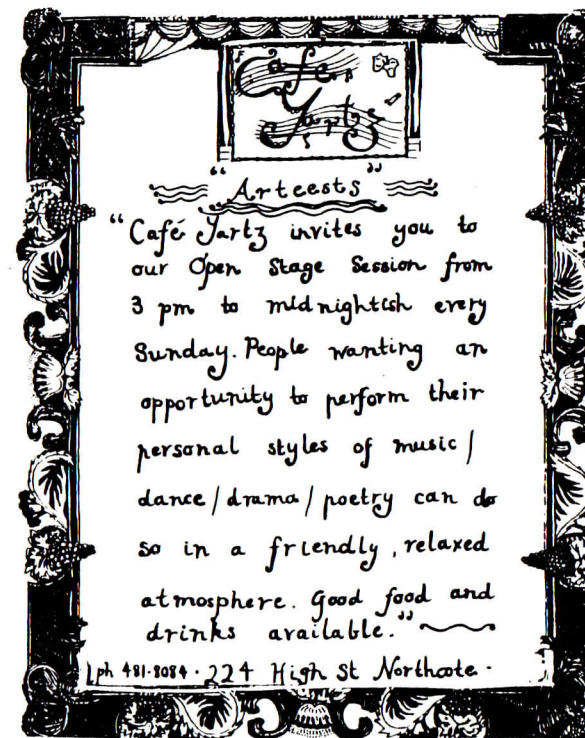 Cafe
Yartz
"Arteests"
"Café Yartz invites you to
our Open Stage Session from
3 pm to midnightish every
Sunday. People wanting an
opportunity to perform their
personal styles of music/
dance/drama/poetry can do
so in a friendly, relaxed
atmosphere. Good food and
drinks available."
ph 481-8084 · 224 High St Northcote ·